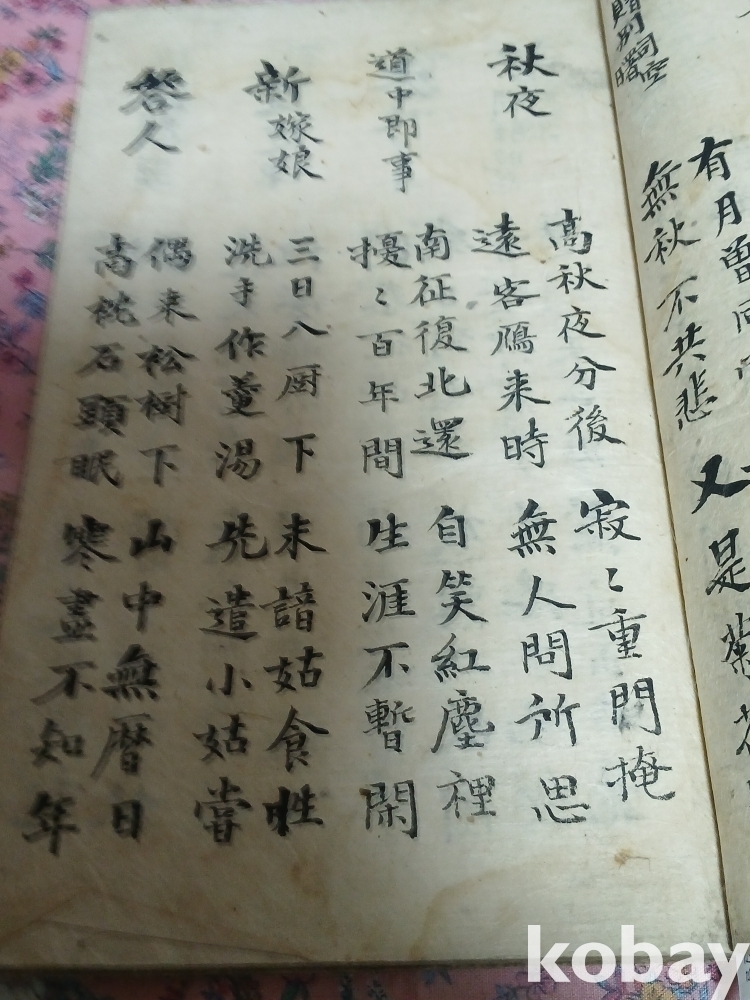 贈別司空
曙
有月曾同
無秋不共悲
又是菊花
秋夜
高秋夜分後
遠客鴈来時
寂〻重門掩
無人問所思
道中即事
南征復北還
擾〻百年間
自笑紅塵裡
生涯不暫閑
新嫁娘
三日入厨下
洗手作羹湯
未諳姑食性
先遣小姑嘗
答人
偶来松樹下
高枕石頭眠
山中無曆日
寒盡不知年
kobay